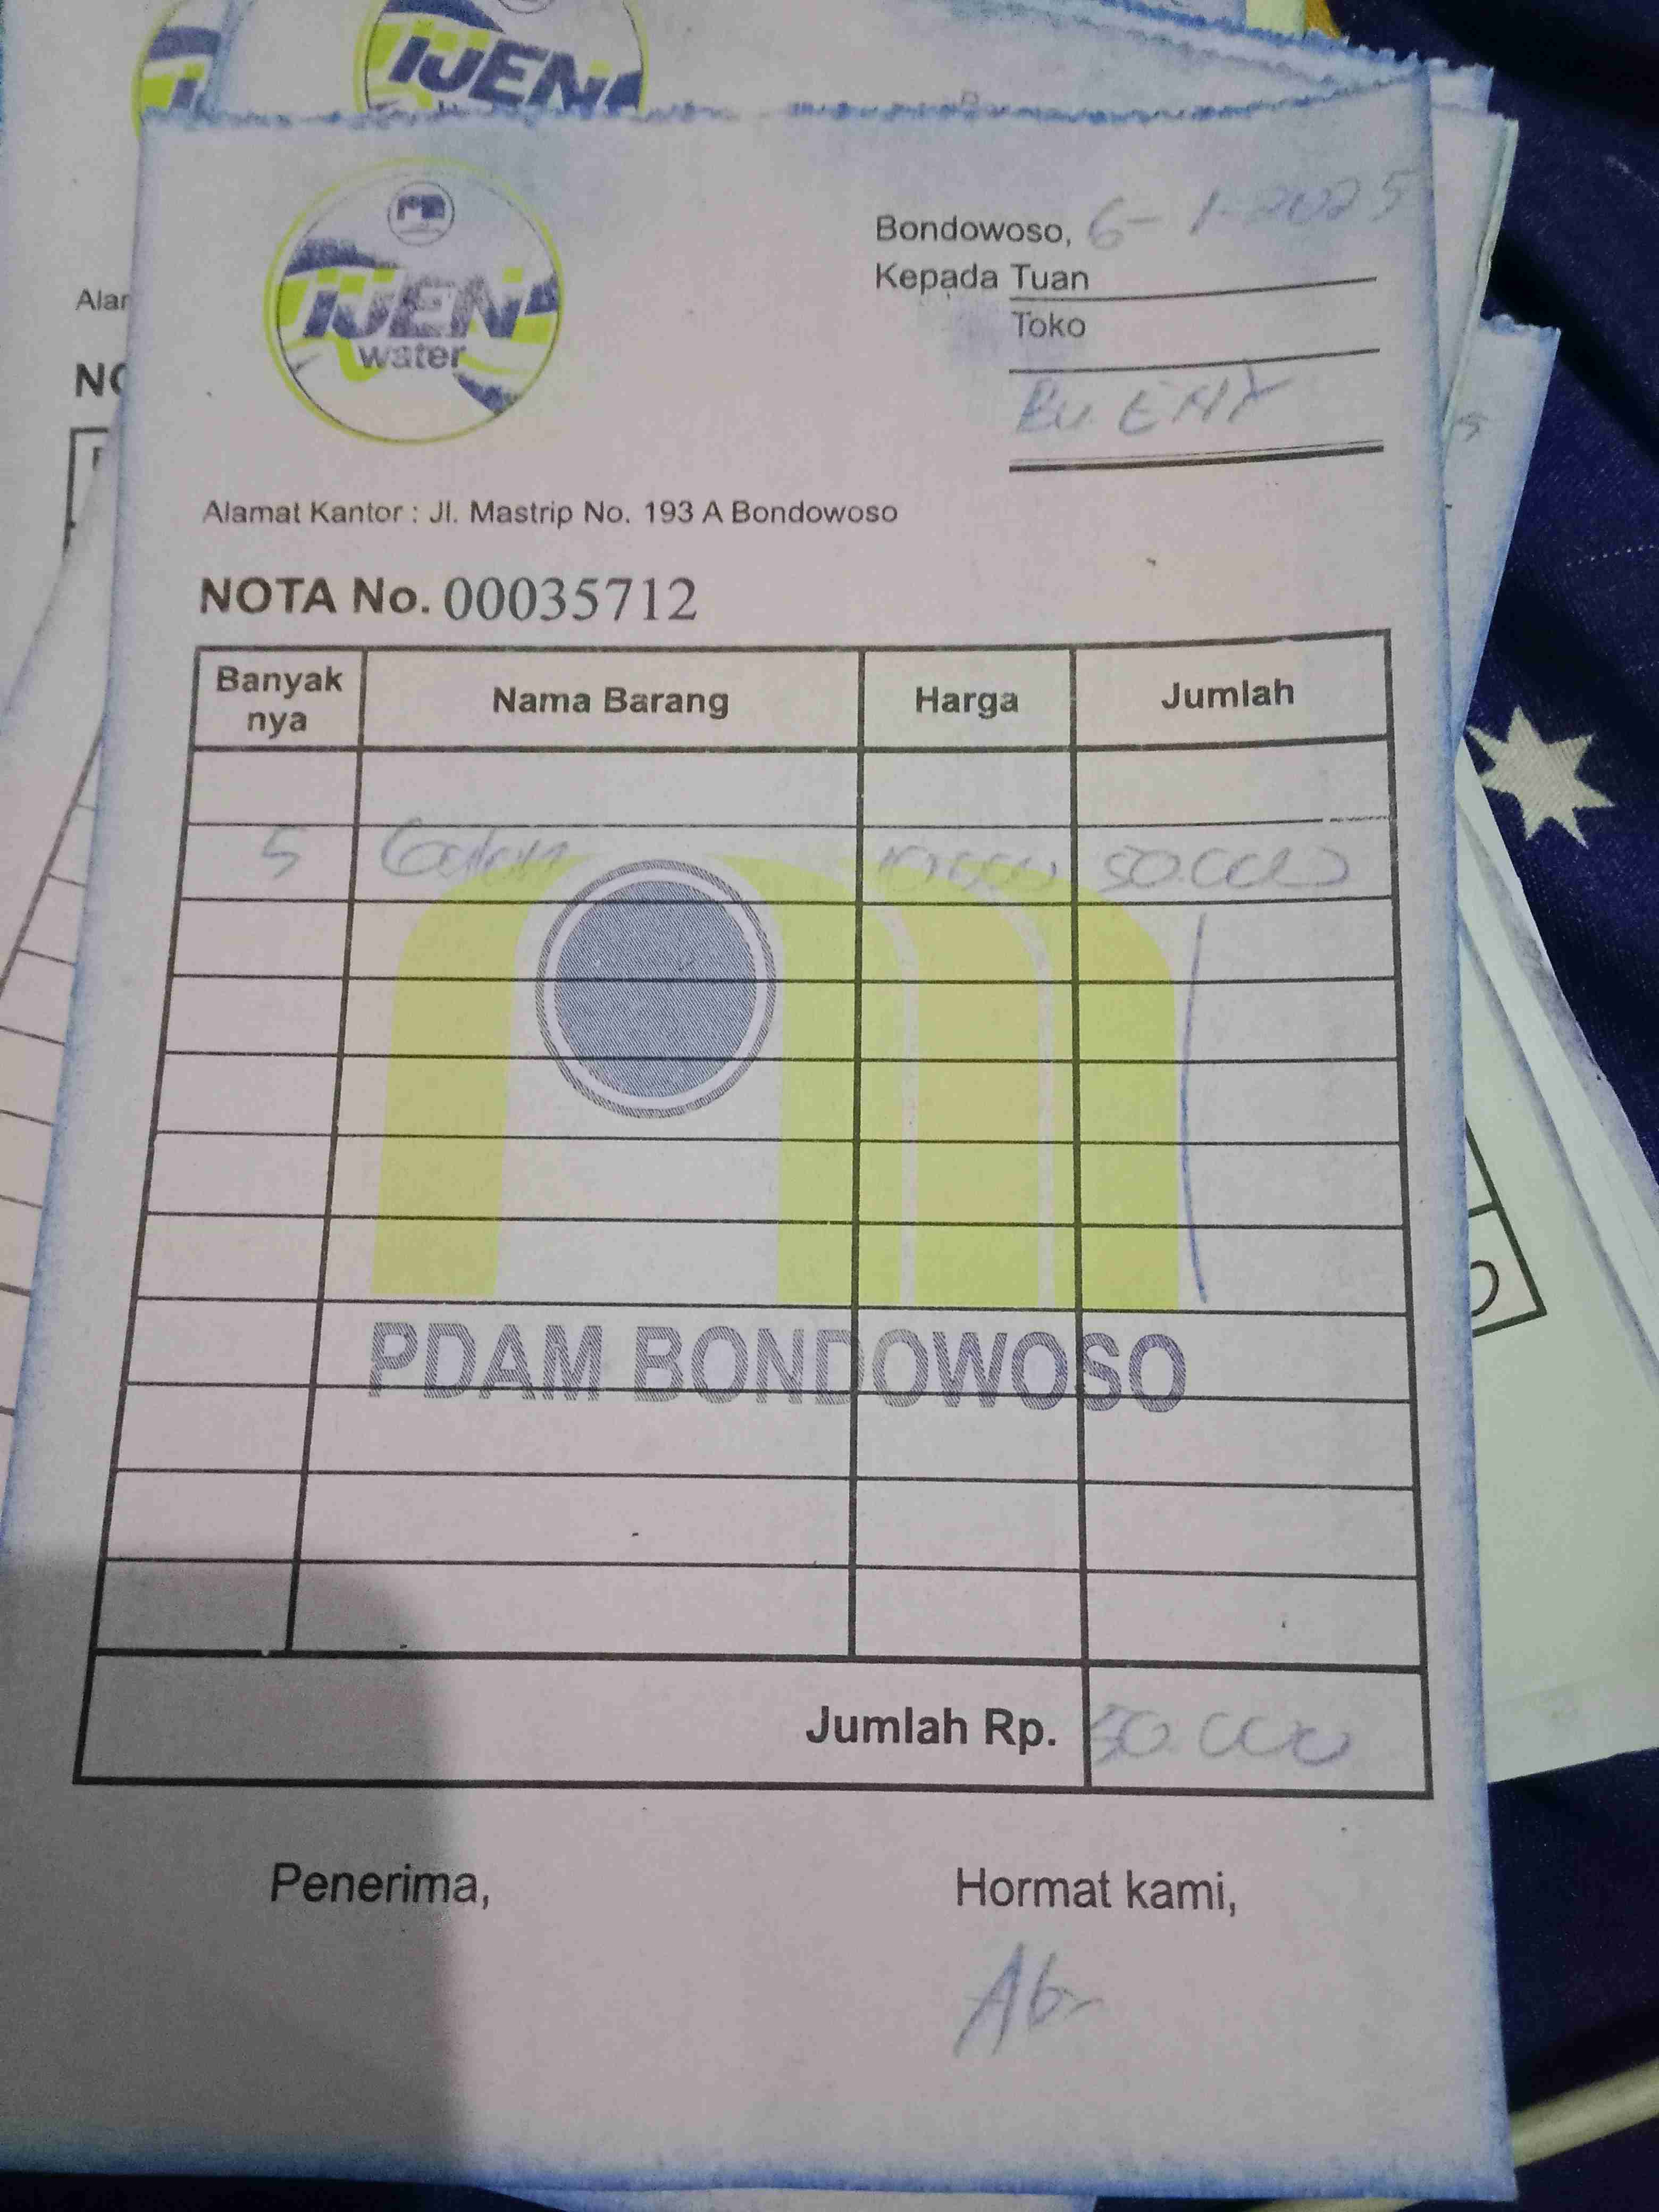 IJEN
IJEN
water
Bondowoso, 6-1-2025
Kepada Tuan
Toko
Bu ENY
Alamat Kantor : Jl. Mastrip No. 193 A Bondowoso
NOTA No. 00035712
Banyak nya Nama Barang Harga Jumlah
5 Galon 10.000 50.000
PDAM BONDOWOSO
Jumlah Rp. 50.000
Penerima, Hormat kami,